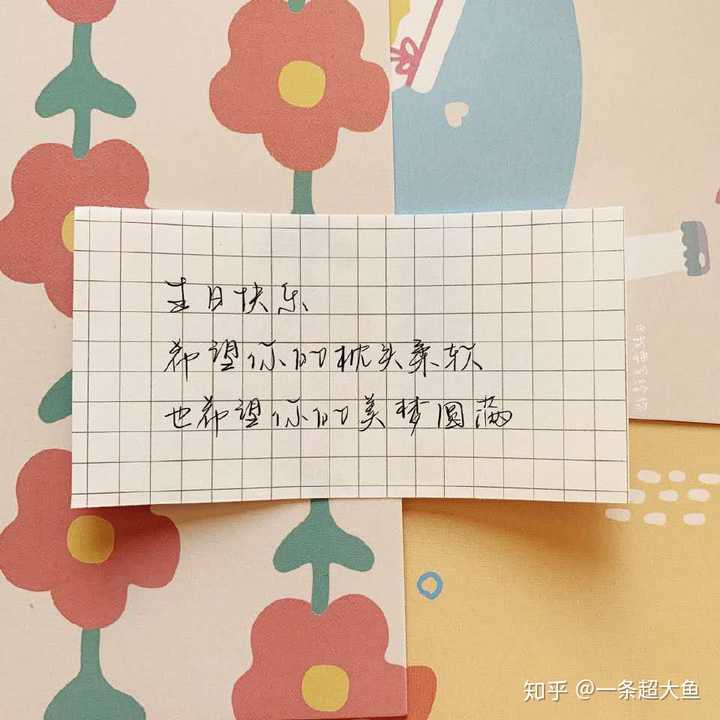 生日快乐
希望你的枕头柔软
也希望你的美梦圆满
知乎 @一条超大鱼